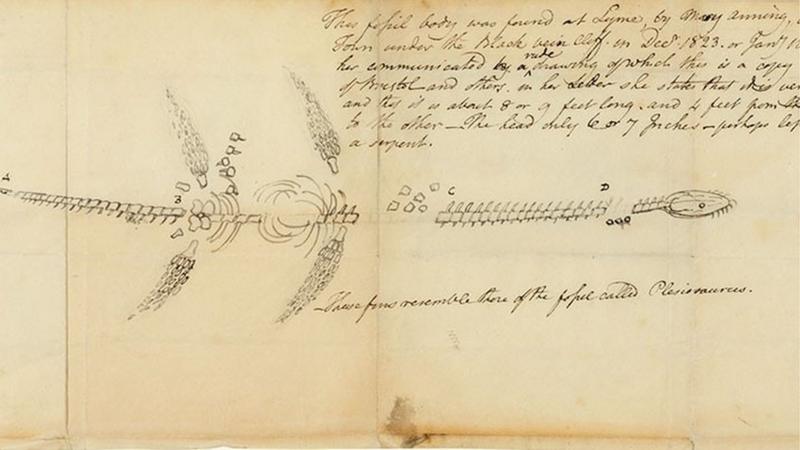 This fossil body was found at Lyme, by Mary Anning,
Town under the Black vein Cliff. in Decr. 1823. or Jany
has communicated by a rude drawing of which this is a copy
of Bristol and others. in her letter she states that it is
and that is about 8 or 9 feet long. and 4 feet from
to the other — The head only 6 or 7 Inches — perhaps
a serpent.
A
B
C
D
These fins resemble those of the fossil called Plesiosaurus.